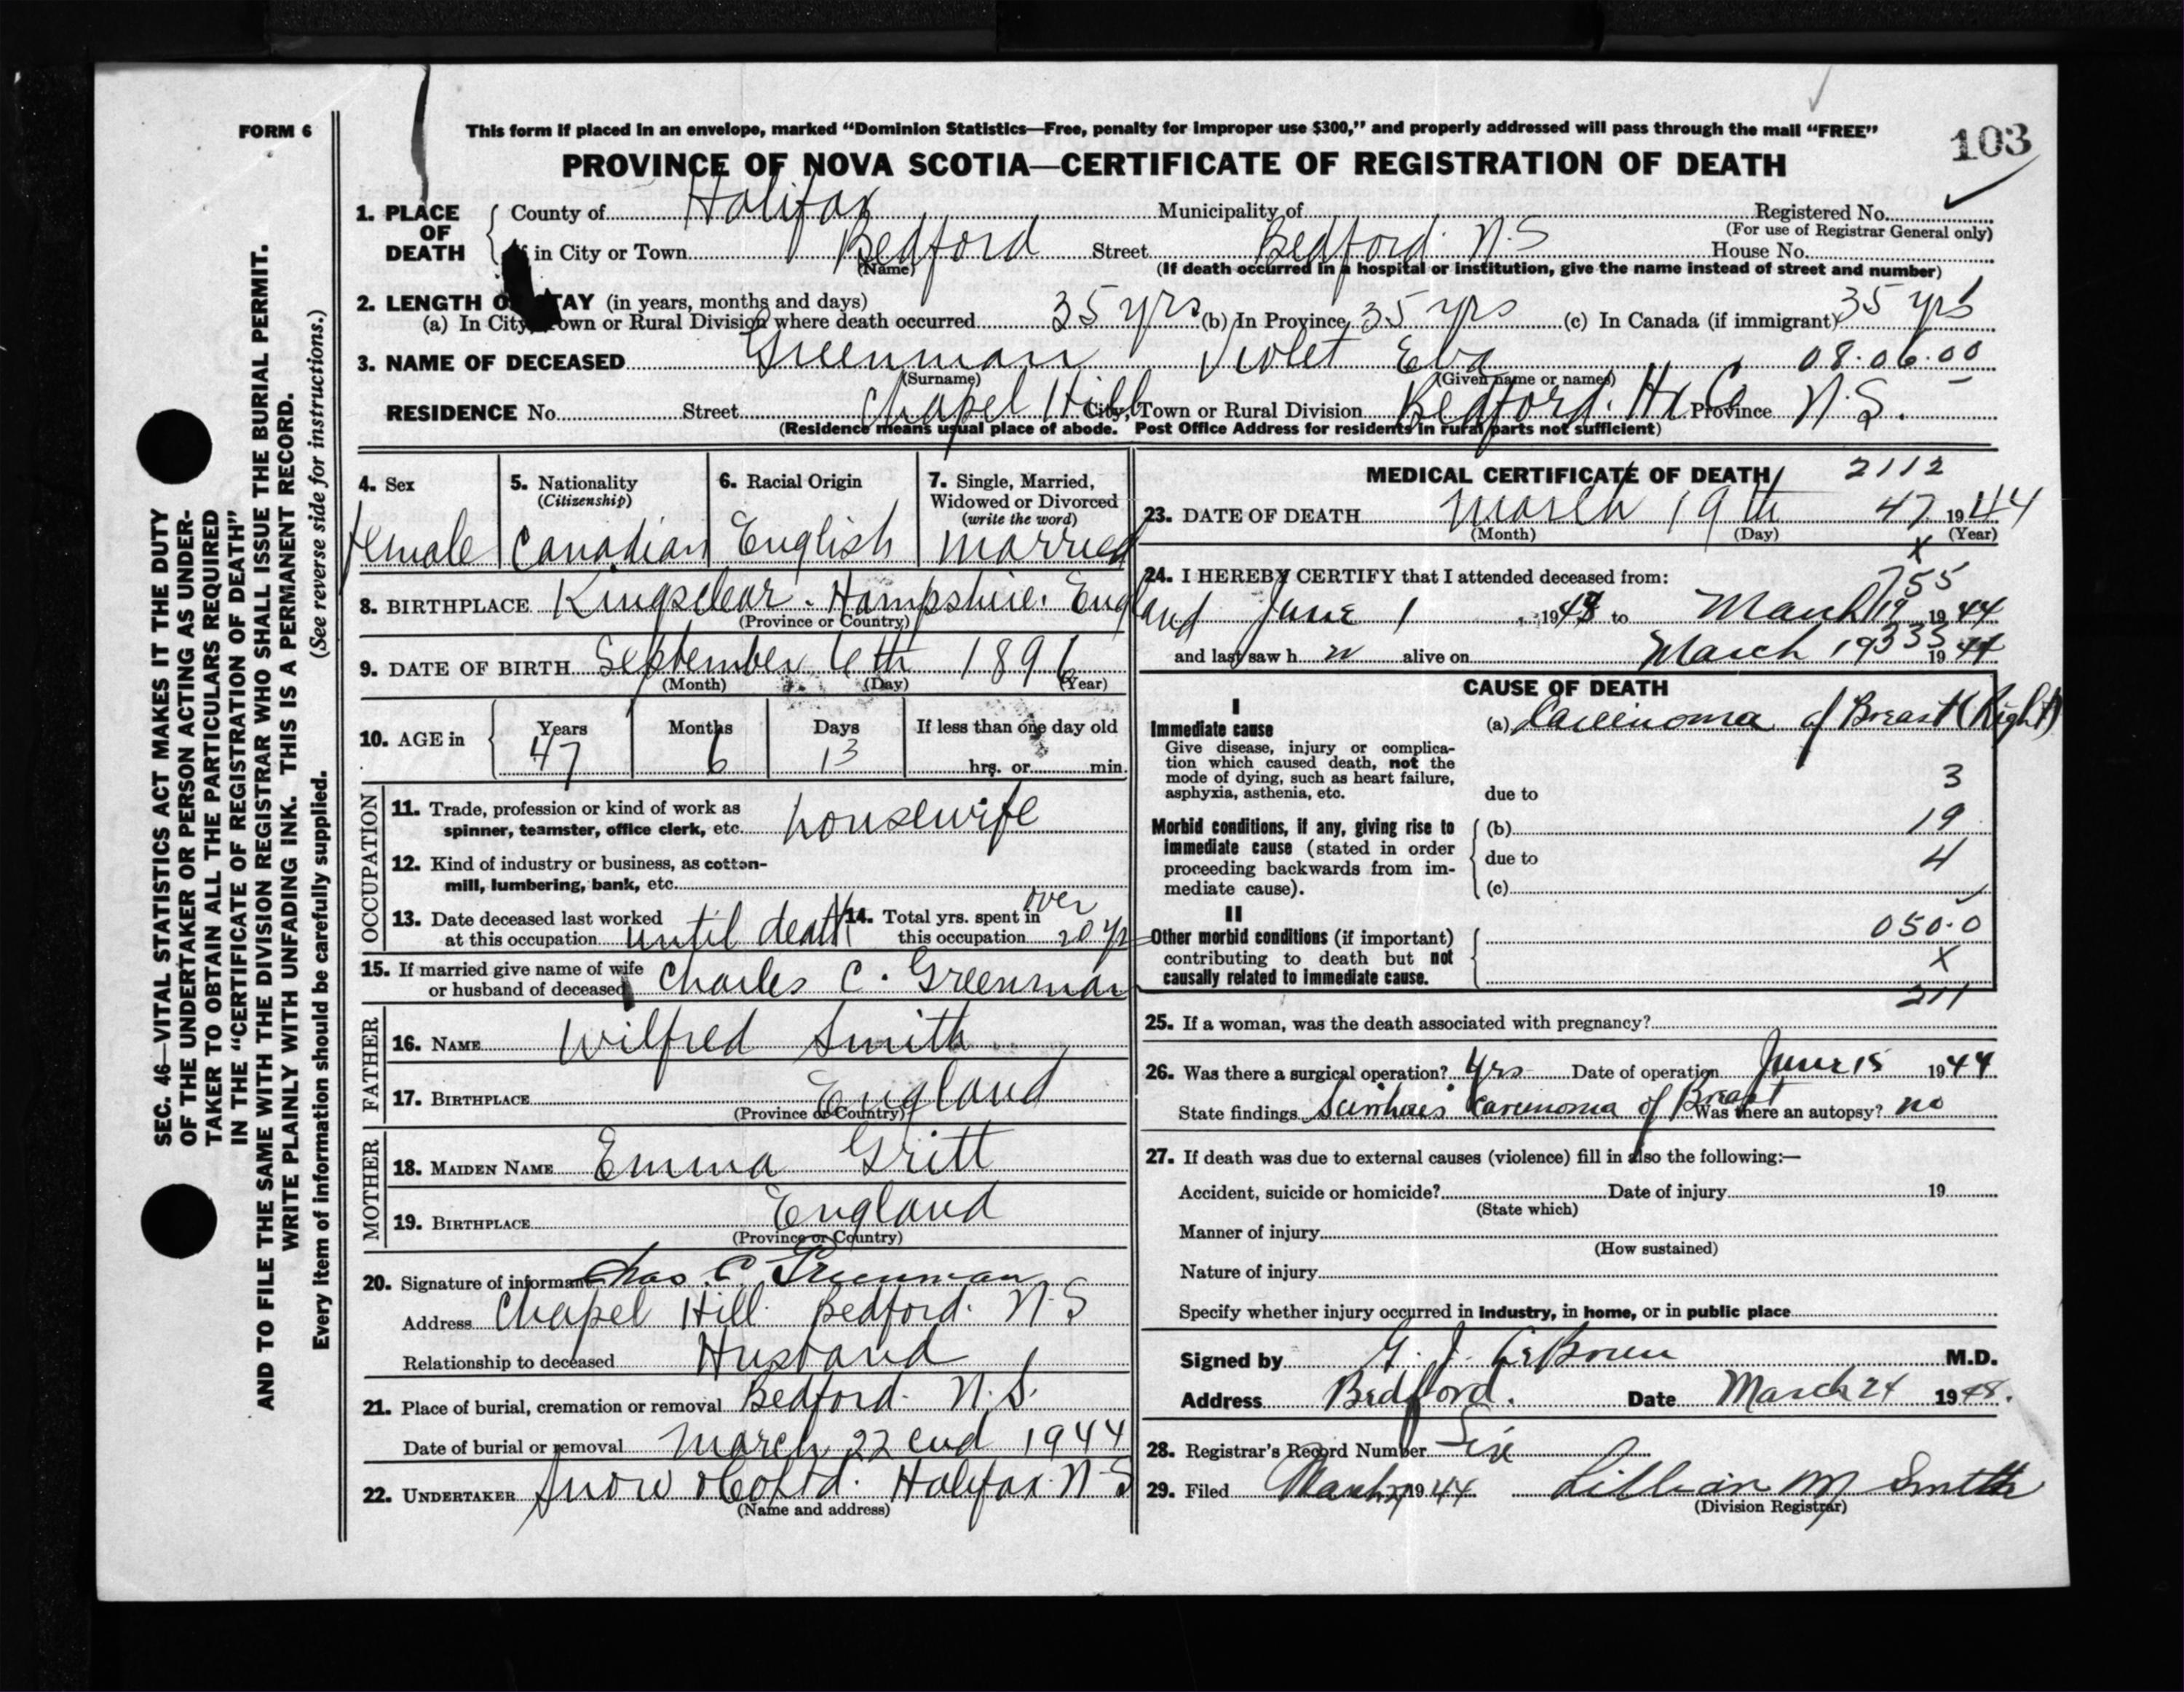 FORM 6
This form if placed in an envelope, marked “Dominion Statistics—Free, penalty for improper use $300,” and properly addressed will pass through the mail “FREE”
103
PROVINCE OF NOVA SCOTIA—CERTIFICATE OF REGISTRATION OF DEATH
1. PLACE OF DEATH
County of Halifax Municipality of Registered No.
(For use of Registrar General only)
in City or Town Bedford Street Bedford. N.S House No.
(Name) (If death occurred in a hospital or institution, give the name instead of street and number)
2. LENGTH OF STAY (in years, months and days)
(a) In City, Town or Rural Division where death occurred 35 yrs (b) In Province 35 yrs (c) In Canada (if immigrant) 35 yrs
3. NAME OF DECEASED Greenman Violet Eva 08.06.00
(Surname) (Given name or names)
RESIDENCE No. Street Chapel Hill City, Town or Rural Division Bedford. Hx Co Province N.S.
(Residence means usual place of abode. Post Office Address for residents in rural parts not sufficient)
4. Sex
female
5. Nationality
(Citizenship)
Canadian
6. Racial Origin
English
7. Single, Married,
Widowed or Divorced
(write the word)
married
8. BIRTHPLACE Kingsclear. Hampshire. England
(Province or Country)
9. DATE OF BIRTH September 6th 1896
(Month) (Day) (Year)
10. AGE in Years Months Days If less than one day old
47 6 13 hrs. or min.
OCCUPATION
11. Trade, profession or kind of work as
spinner, teamster, office clerk, etc. housewife
12. Kind of industry or business, as cotton-
mill, lumbering, bank, etc.
13. Date deceased last worked
at this occupation until death
14. Total yrs. spent in over
this occupation 20 yr
15. If married give name of wife
or husband of deceased Charles C. Greenman
FATHER
16. NAME Wilfred Smith
17. BIRTHPLACE England
(Province or Country)
MOTHER
18. MAIDEN NAME Emma Gritt
19. BIRTHPLACE England
(Province or Country)
20. Signature of informant Chas C. Greenman
Address Chapel Hill. Bedford. N.S
Relationship to deceased Husband
21. Place of burial, cremation or removal Bedford. N.S.
Date of burial or removal March 22 end 1944
22. UNDERTAKER Snow & Co Ltd. Halifax. N S
(Name and address)
MEDICAL CERTIFICATE OF DEATH 2112
23. DATE OF DEATH March 19th 47 1944
(Month) (Day) (Year)
X
24. I HEREBY CERTIFY that I attended deceased from: 755
June 1, 1943 to March 19 1944
and last saw h alive on March 19 335 1944
CAUSE OF DEATH
I
Immediate cause
Give disease, injury or complica-
tion which caused death, not the
mode of dying, such as heart failure,
asphyxia, asthenia, etc.
(a) Carcinoma of Breast (Right)
due to 3
Morbid conditions, if any, giving rise to
immediate cause (stated in order
proceeding backwards from im-
mediate cause).
(b) 19
due to 4
(c)
II
Other morbid conditions (if important)
contributing to death but not
causally related to immediate cause.
050.0
X
211
25. If a woman, was the death associated with pregnancy?
26. Was there a surgical operation? yes Date of operation June 15 1944
State findings Scirrhous Carcinoma of Breast Was there an autopsy? no
27. If death was due to external causes (violence) fill in also the following:—
Accident, suicide or homicide? Date of injury 19
(State which)
Manner of injury
(How sustained)
Nature of injury
Specify whether injury occurred in industry, in home, or in public place
Signed by G. J. M.D.
Address Bedford. Date March 24 19
28. Registrar's Record Number Six
29. Filed March 1944 Lillian M Smith
(Division Registrar)
SEC. 46—VITAL STATISTICS ACT MAKES IT THE DUTY
OF THE UNDERTAKER OR PERSON ACTING AS UNDER-
TAKER TO OBTAIN ALL THE PARTICULARS REQUIRED
IN THE “CERTIFICATE OF REGISTRATION OF DEATH”
AND TO FILE THE SAME WITH THE DIVISION REGISTRAR WHO SHALL ISSUE THE BURIAL PERMIT.
WRITE PLAINLY WITH UNFADING INK. THIS IS A PERMANENT RECORD.
Every item of information should be carefully supplied. (See reverse side for instructions.)